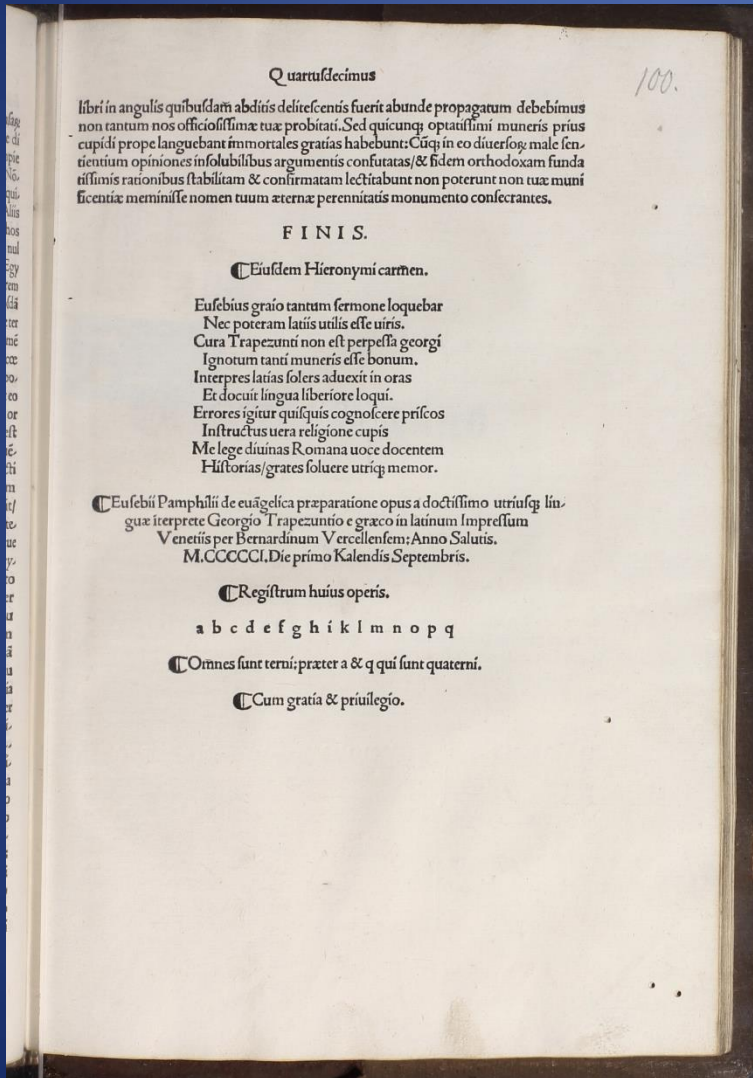 Quartuſdecimus
100.
libri in angulis quibuſdam̃ abditis deliteſcentis fuerit abunde propagatum debebimus
non tantum nos officioſiſſimæ tuæ probitati. Sed quicunqꝫ optatiſſimi muneris prius
cupidi prope languebant immortales gratias habebunt: Cũqꝫ in eo diuerſoꝝ male ſen-
tientium opiniones inſolubilibus argumentis confutatas/& fidem orthodoxam funda
tiſſimis rationibus ſtabilitam & confirmatam lectitabunt non poterunt non tuæ muni
ficentiæ meminiſſe nomen tuum æternæ perennitatis monumento conſecrantes.
FINIS.
⸿Eiuſdem Hieronymi carm̃en.
Euſebius graio tantum ſermone loquebar
Nec poteram latiis utilis eſſe uiris.
Cura Trapezunti non eſt perpeſſa georgi
Ignotum tanti muneris eſſe bonum.
Interpres latias ſolers aduexit in oras
Et docuit lingua liberiore loqui.
Errores igitur quiſquis cognoſcere priſcos
Inſtructus uera religione cupis
Me lege diuinas Romana uoce docentem
Hiſtorias/grates ſoluere utriqꝫ memor.
⸿Euſebii Pamphilii de euãgelica præparatione opus a doctiſſimo utriuſqꝫ lin-
guæ ĩterprete Georgio Trapezuntio e græco in latinum Impreſſum
Venetiis per Bernardinum Vercellenſem: Anno Salutis.
M.CCCCCI. Die primo Kalendis Septembris.
⸿Regiſtrum huius operis.
a b c d e f g h i k l m n o p q
⸿Om̃nes ſunt terni: præter a & q qui ſunt quaterni.
⸿Cum gratia & priuilegio.